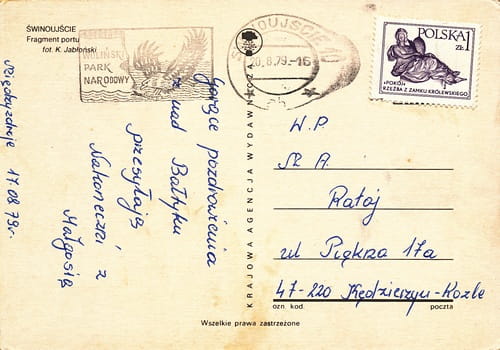 ŚWINOUJŚCIE
Fragment portu
fot. K. Jabłoński
WOLIŃSKI
PARK
NARODOWY
ŚWINOUJŚCIE 1
20.8.79.-16
POLSKA 1
ZŁ
«POKÓJ»
RZEŹBA Z ZAMKU KRÓLEWSKIEGO
Międzyzdroje 17.08.79r.
Gorące pozdrowienia
znad Bałtyku
przesyłają
Nakoneczni z
Małgosią
KRAJOWA AGENCJA WYDAWNICZA
W.P.
A.
Ratoj
ul Piękna 17a
47-220 Kędzierzyn-Koźle
ozn. kod.
poczta
Wszelkie prawa zastrzeżone